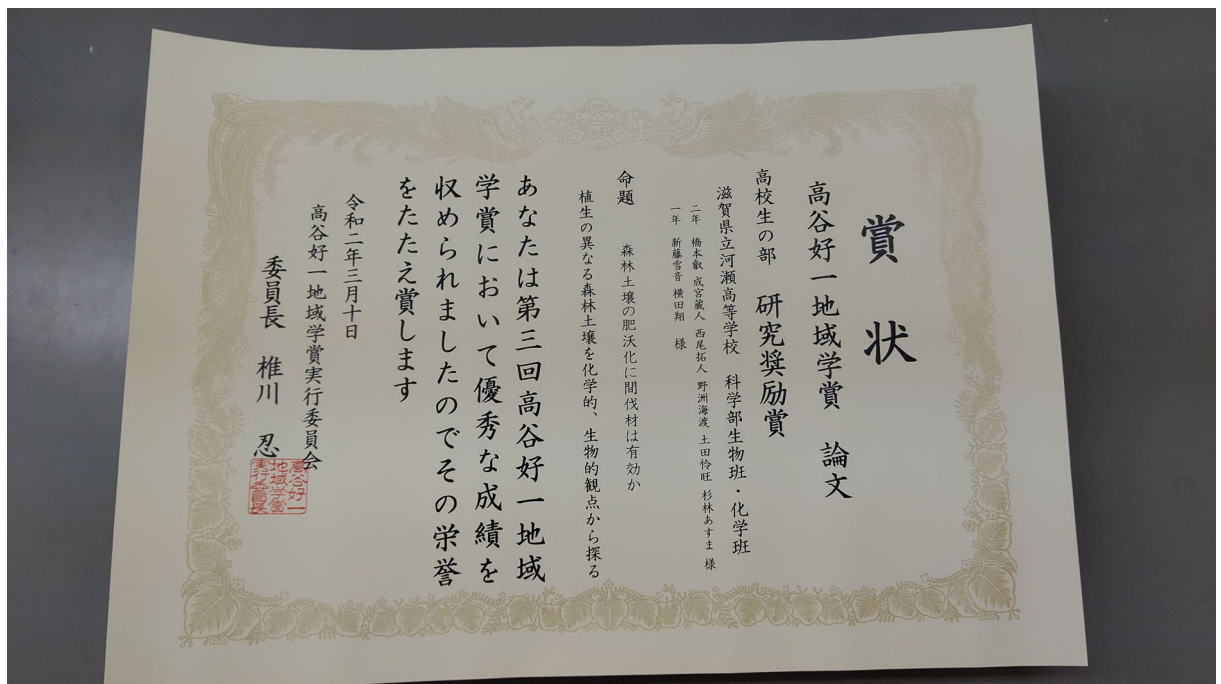 賞状
高谷好一地域学賞 論文
高校生の部 研究奨励賞
滋賀県立河瀬高等学校 科学部生物班・化学班
二年 橋本叡 成宮蔵人 西尾拓人 野洲海渡 土田怜旺 杉林あすま 様
一年 新藤雪音 横田翔 様
命題 森林土壌の肥沃化に間伐材は有効か
植生の異なる森林土壌を化学的、生物的観点から探る
あなたは第三回高谷好一地域
学賞において優秀な成績を
収められましたのでその栄誉
をたたえ賞します
令和二年三月十日
高谷好一地域学賞実行委員会
委員長 椎川 忍
高谷好一
地域学賞
実行委員長